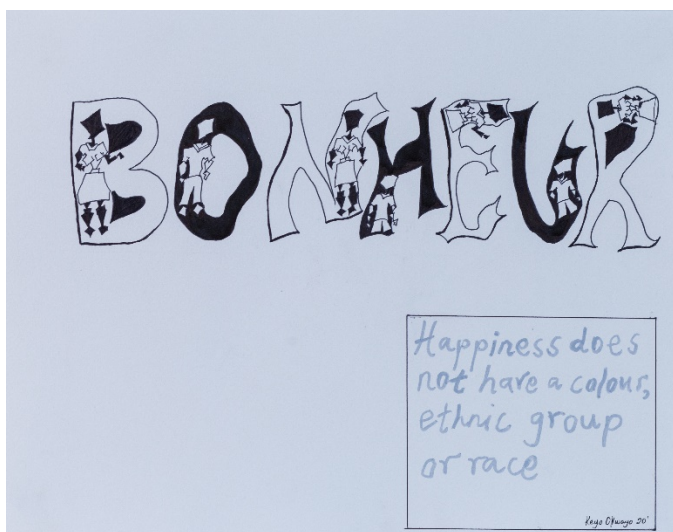 BONHEUR
Happiness does
not have a colour,
ethnic group
or race
20'